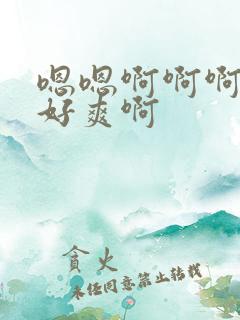 嗯嗯啊啊啊
好爽啊
贪火
未经同意禁止转载